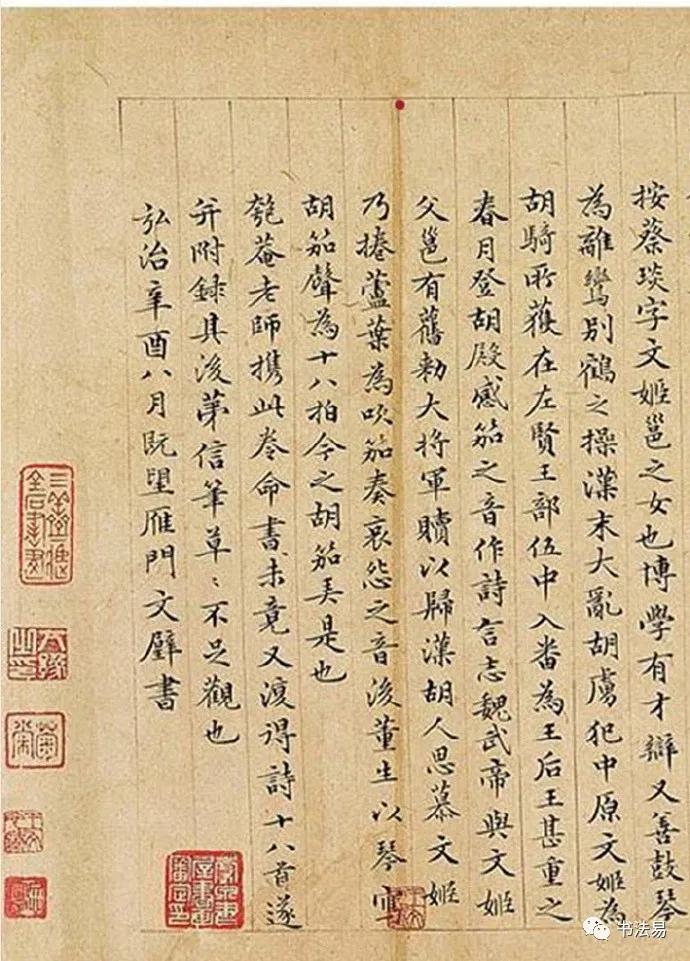 按蔡琰字文姬邕之女也博學有才辯又善鼓琴
為離鸞別鶴之操漢末大亂胡虜犯中原文姬為
胡騎所獲在左賢王部伍中入番為王后王甚重之
春月登胡殿感笳之音作詩言志魏武帝與文姬
父邕有舊勅大將軍贖以歸漢胡人思慕文姬
乃捲蘆葉為吹笳奏哀怨之音後董生以琴寫
胡笳聲為十八拍今之胡笳弄是也
匏菴老師携此卷命書未竟又復得詩十八首遂
并附録其後第信筆草〻不足觀也
弘治辛酉八月既望雁門文璧書
书法易